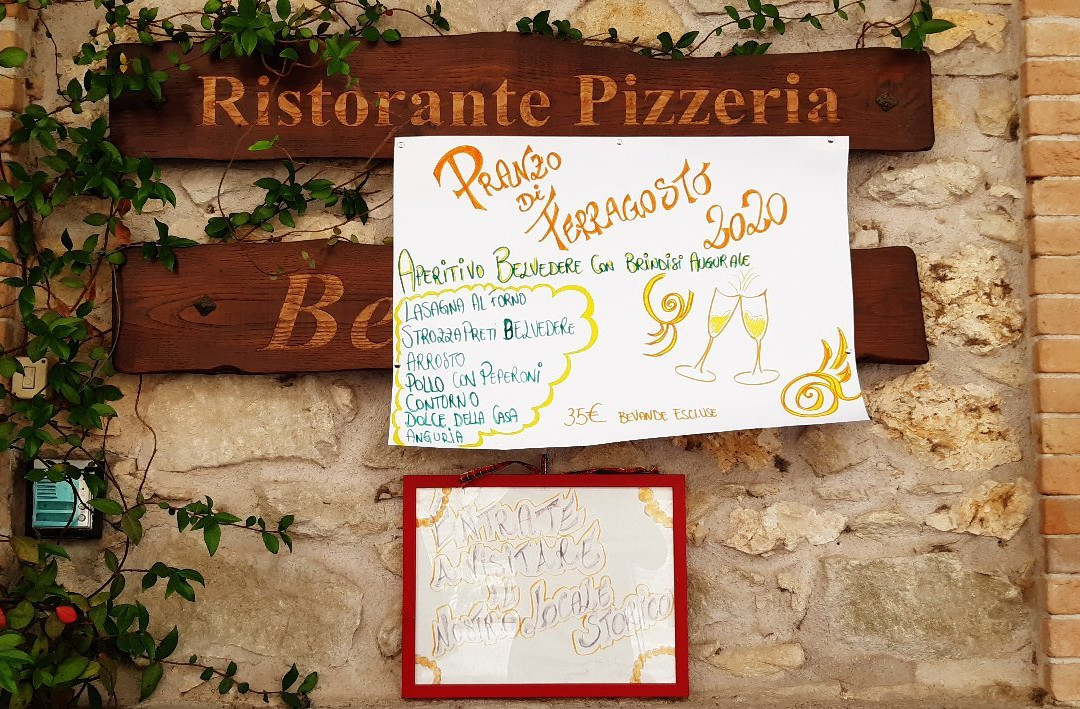 Ristorante Pizzeria
Be
PRANZO
DI
FERRAGOSTO
2020
APERITIVO BELVEDERE CON BRINDISI AUGURALE
LASAGNA AL FORNO
STROZZAPRETI BELVEDERE
ARROSTO
POLLO CON PEPERONI
CONTORNO
DOLCE DELLA CASA
ANGURIA
35€ BEVANDE ESCLUSE
ENTRATE
A VISITARE
IL
NOSTRO LOCALE
STORICO